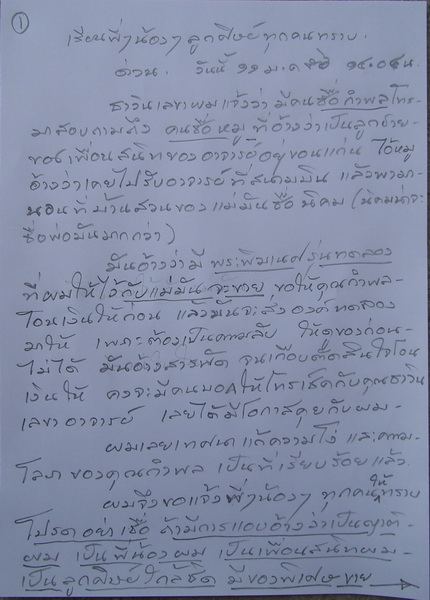 ①
เรียนพี่ๆน้องๆ ลูกศิษย์ ทุกคนทราบ.
ด่วน. วันนี้ ๑๑ ม.ค ๑๔.๐๔ น.
ธาวินเลขาผมแจ้งว่า มีคนชื่อ กำพล โทร-
มาสอบถามถึง คนชื่อ หมู ที่อ้างว่าเป็นลูกชาย-
ของเพื่อนสนิทของอาจารย์อยู่ขอนแก่น ไอ้หมู
อ้างว่าเคยไปรับอาจารย์ที่สนามบิน แล้วพามา-
นอนที่บ้านสวนของแม่มันชื่อ นิคม (นิคมน่าจะ
ชื่อพ่อมันมากกว่า)
มันอ้างว่ามี พระพิฆเนศรุ่นทดลอง
ที่ผมให้ไว้กับแม่มัน จะขาย ขอให้คุณกำพล-
โอนเงินให้ก่อน แล้วมันจะส่งองค์ทดลอง
มาให้ เพราะต้องเป็นความลับ ให้ดูของก่อน-
ไม่ได้ มันอ้างสารพัด จนเกือบตัดสินใจโอน
เงินให้ คงจะมีคนบอกให้โทรเช็คกับคุณธาวิน
เลขาอาจารย์ เลยได้มีโอกาสคุยกับผม-
ผมเลยเทศนาแก้ความโง่ และความ-
โลภของคุณกำพล เป็นที่เรียบร้อยแล้ว.
ผมจึงขอแจ้งพี่ๆน้องๆ ทุกคนให้ทราบ
โปรดอย่าเชื่อ ถ้ามีการแอบอ้างว่าเป็นญาติ-
ผม เป็นพี่น้องผม เป็นเพื่อนสนิทผม-
เป็นลูกศิษย์ใกล้ชิด มีของพิเศษขาย